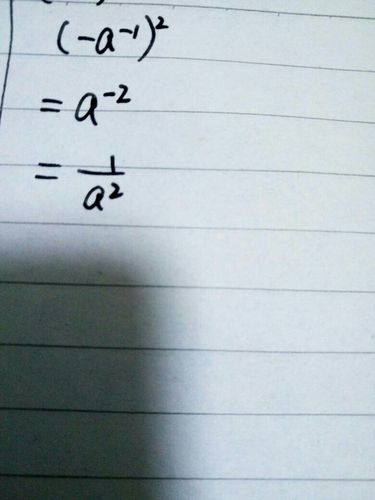 (-a⁻¹)²
= a⁻²
= 1/a²